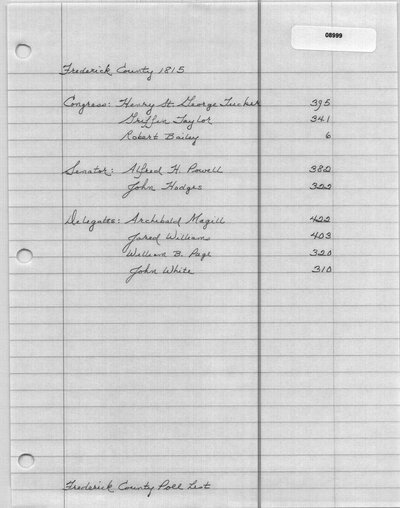 08999
Frederick County 1815
Congress: Henry St. George Tucker 395
Griffin Taylor 341
Robert Bailey 6
Senator: Alfred H. Powell 382
John Hodges 322
Delegates: Archibald Magill 422
Jared Williams 403
William B. Page 320
John White 310
Frederick County Poll List